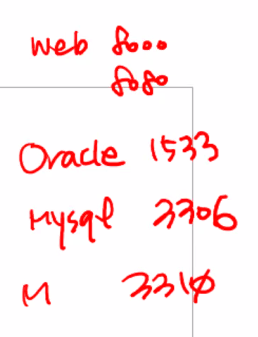 web 8000
8080
Oracle 1533
Mysql 3306
M 3310